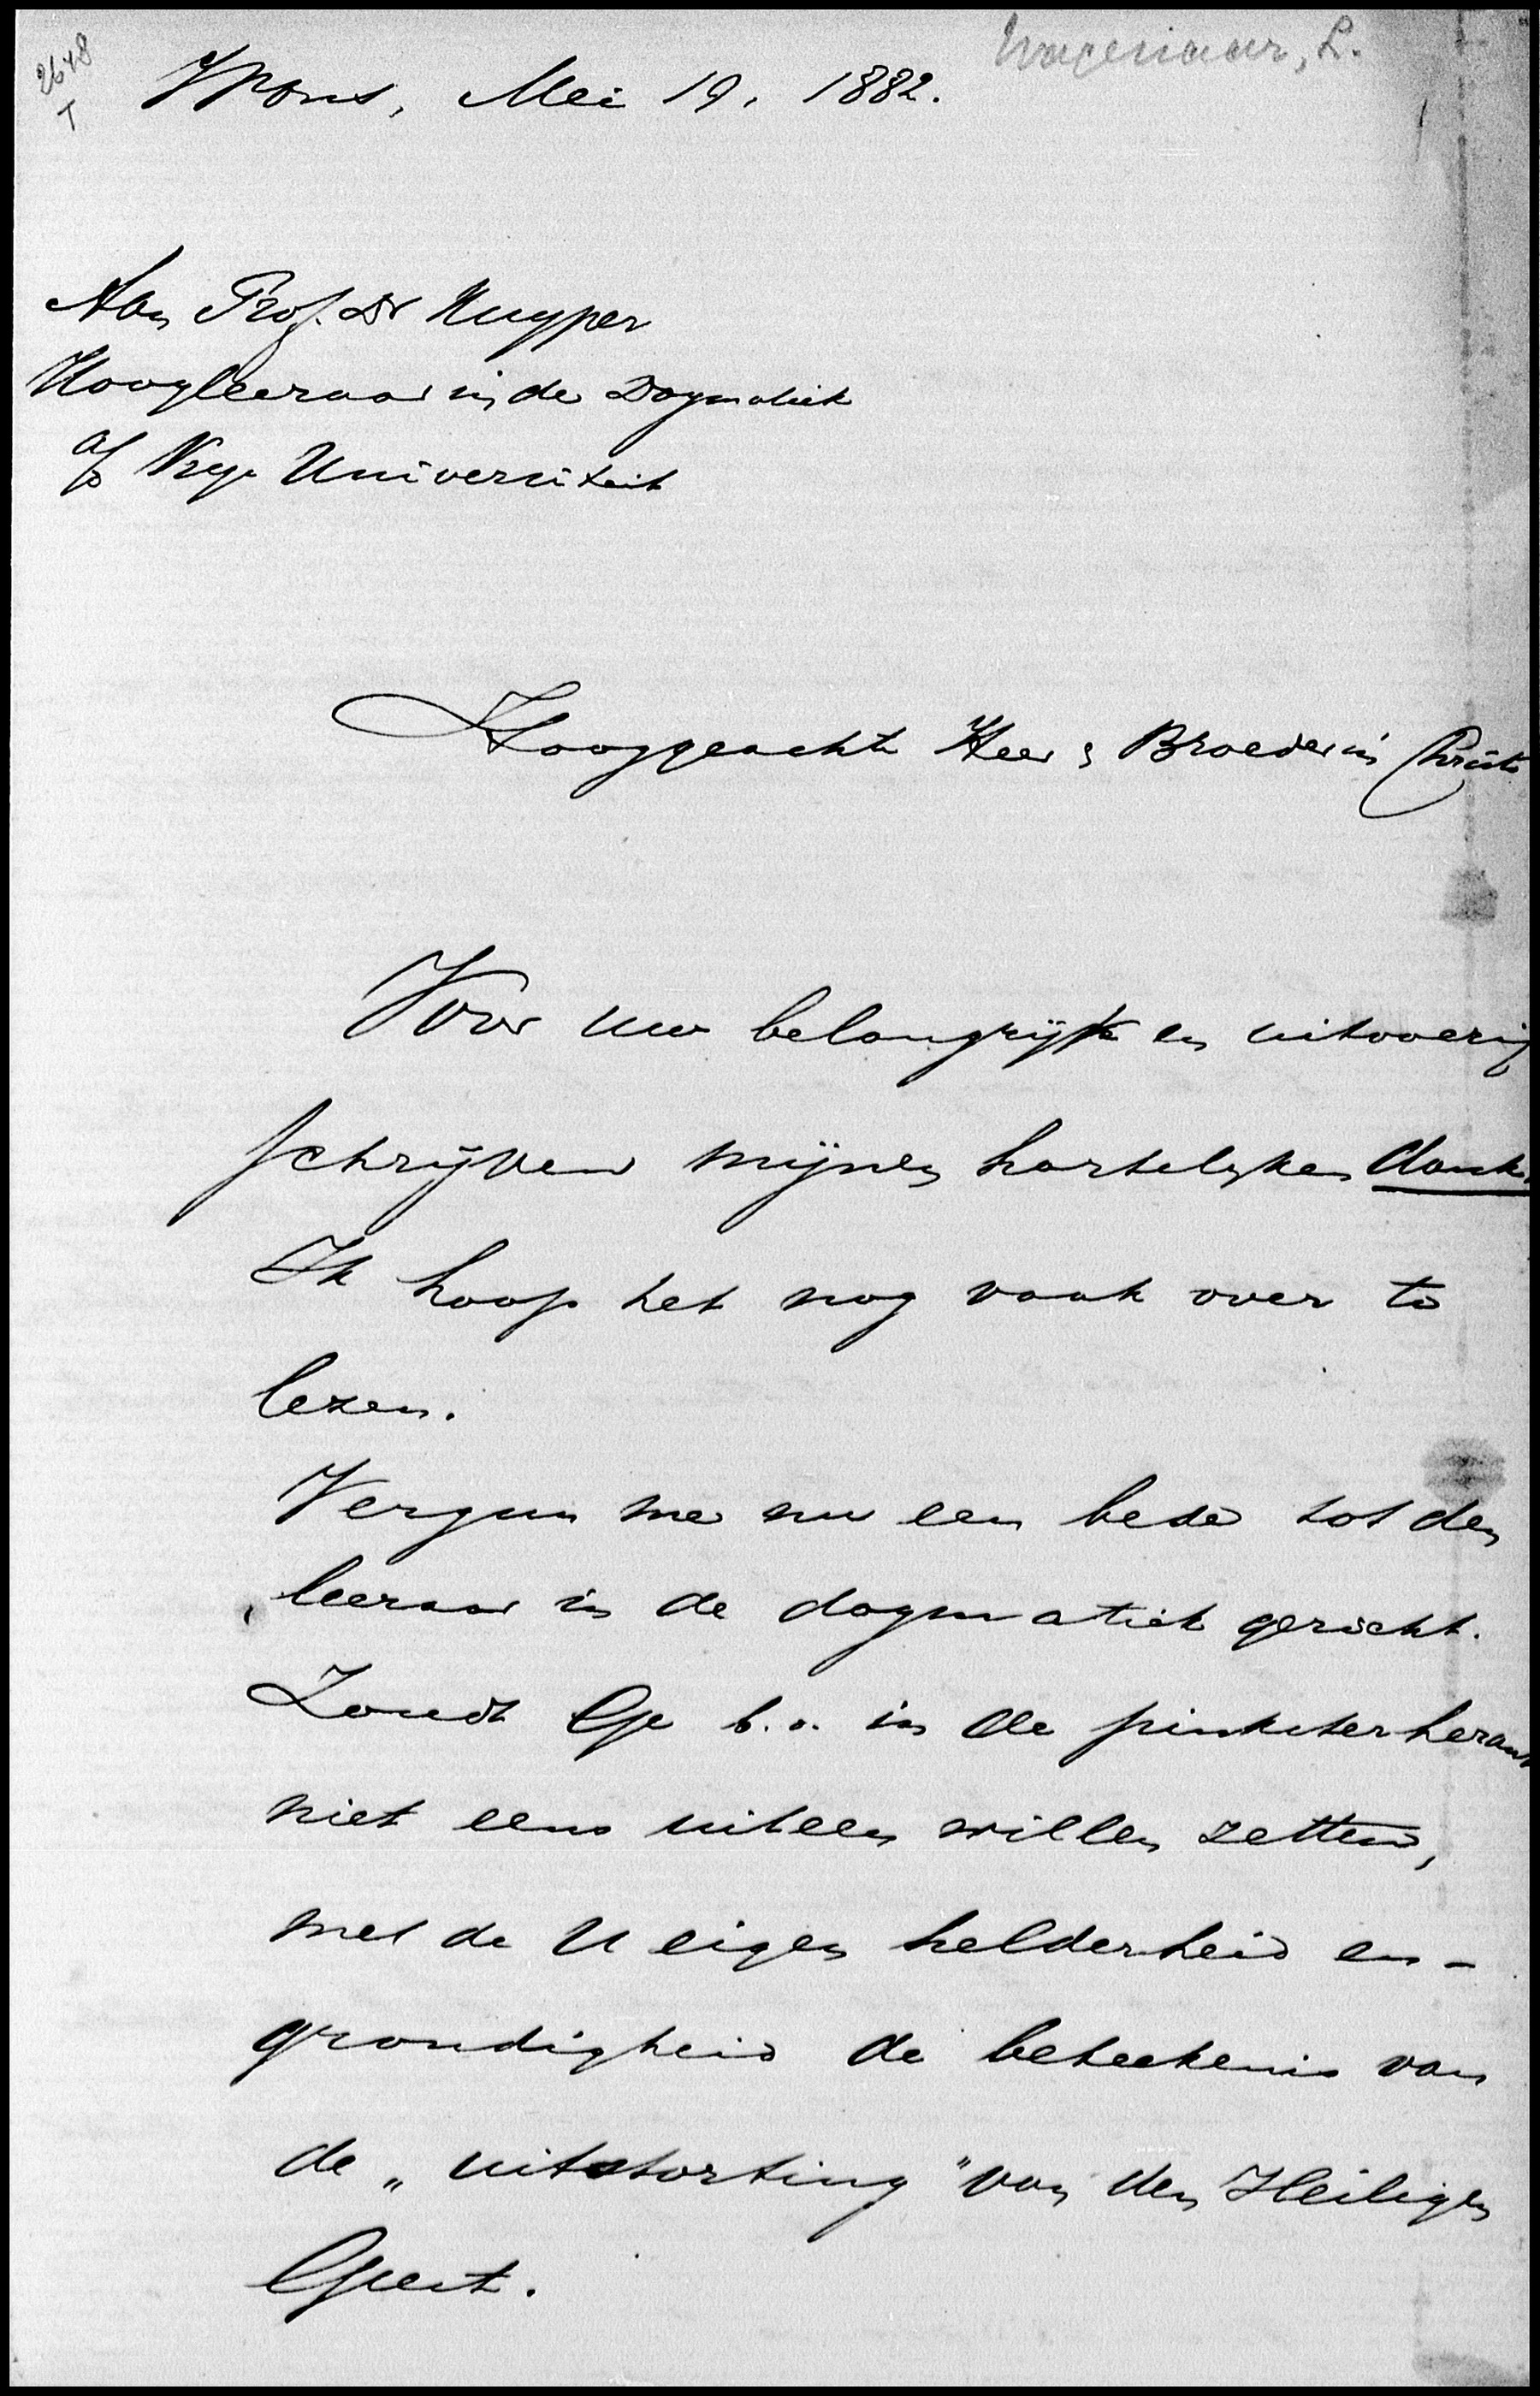 Wagenaar, L.
2648
T
Wons, Mei 19, 1882.
Aan Prof. Dr Kuyper
Hoogleeraar in de Dogmatiek
a/d Vrije Universiteit
Hooggeachte Heer & Broeder in Christo
Voor uw belangrijk en uitvoerig
schrijven mijnen hartelyken dank.
Ik hoop het nog vaak over te
lezen.
Vergun me nu een bede tot den
leeraar in de dogmatiek gericht.
Zoudt Ge b.v. in de pinksterheraut
niet eens uiteen willen zetten,
met de U eigen helderheid en-
grondigheid de beteekenis van
de „uitstorting" van den Heiligen
Geest.